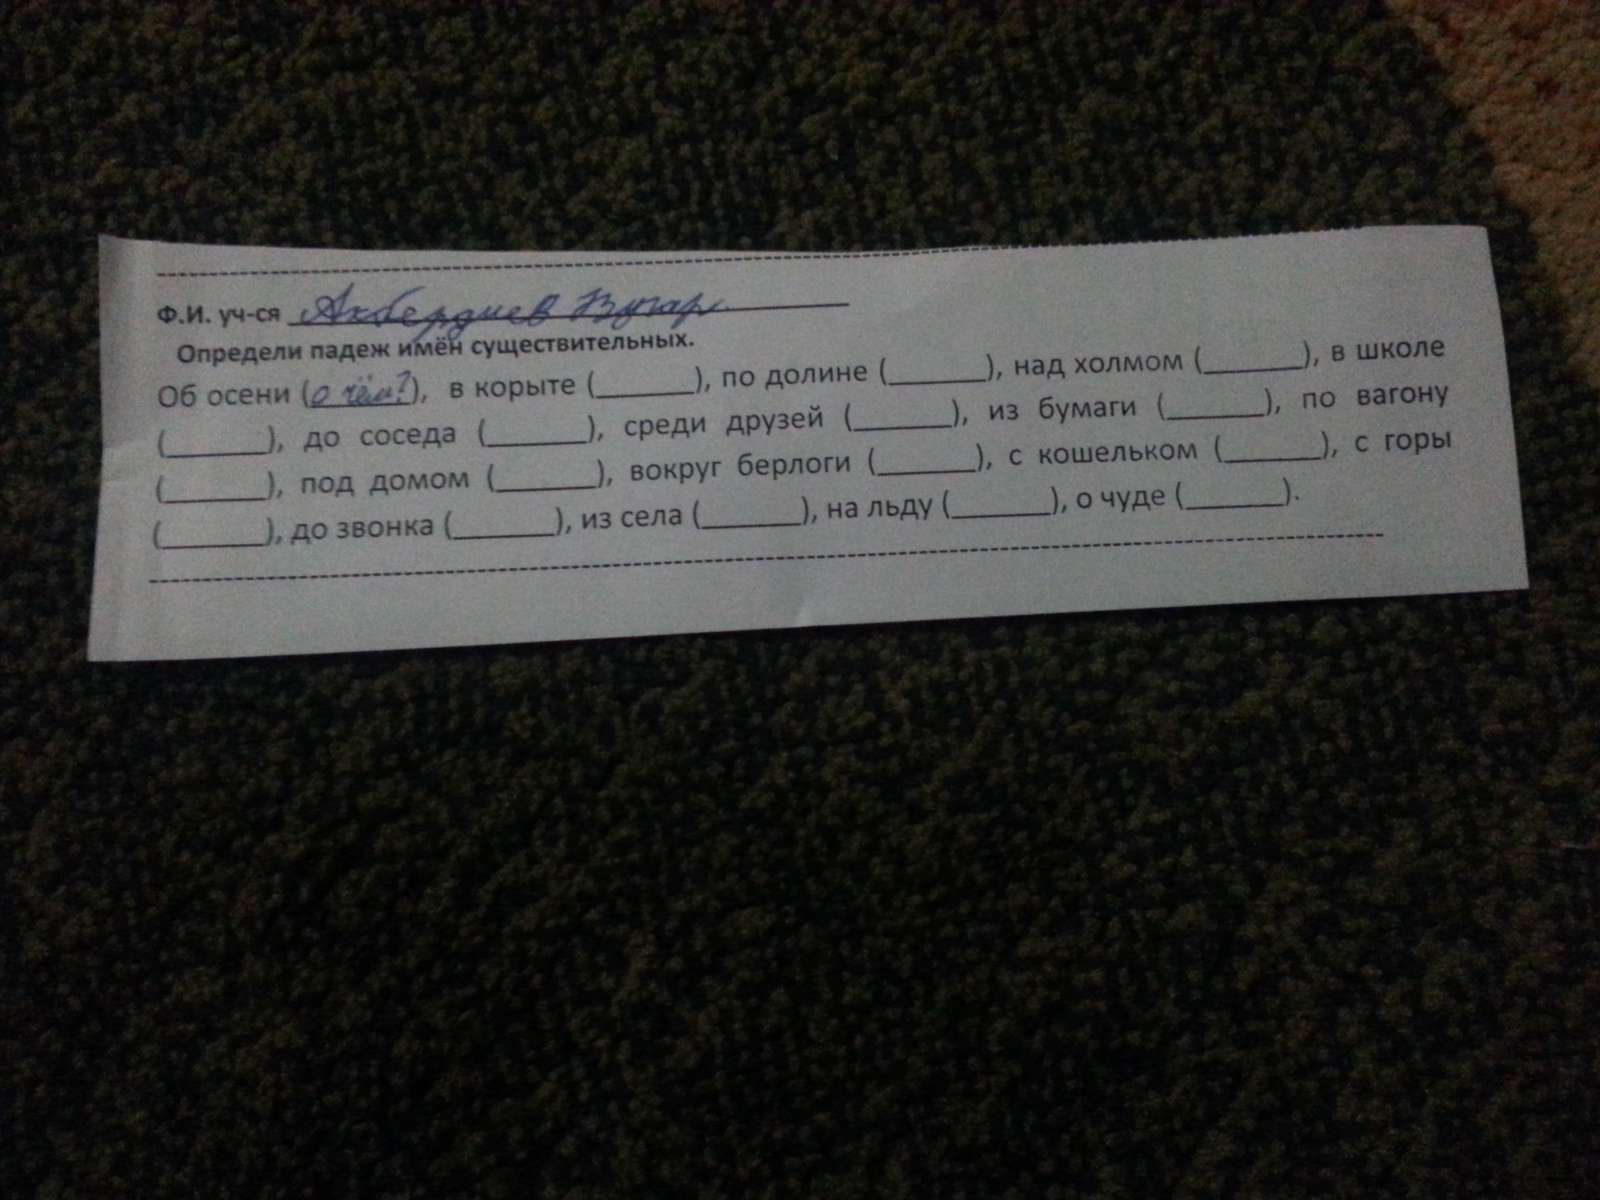 Ф.И. уч-ся Акбердиев Вугар
Определи падеж имён существительных.
Об осени (о чём?), в корыте (______), по долине (______), над холмом (______), в школе
(______), до соседа (______), среди друзей (______), из бумаги (______), по вагону
(______), под домом (______), вокруг берлоги (______), с кошельком (______), с горы
(______), до звонка (______), из села (______), на льду (______), о чуде (______).